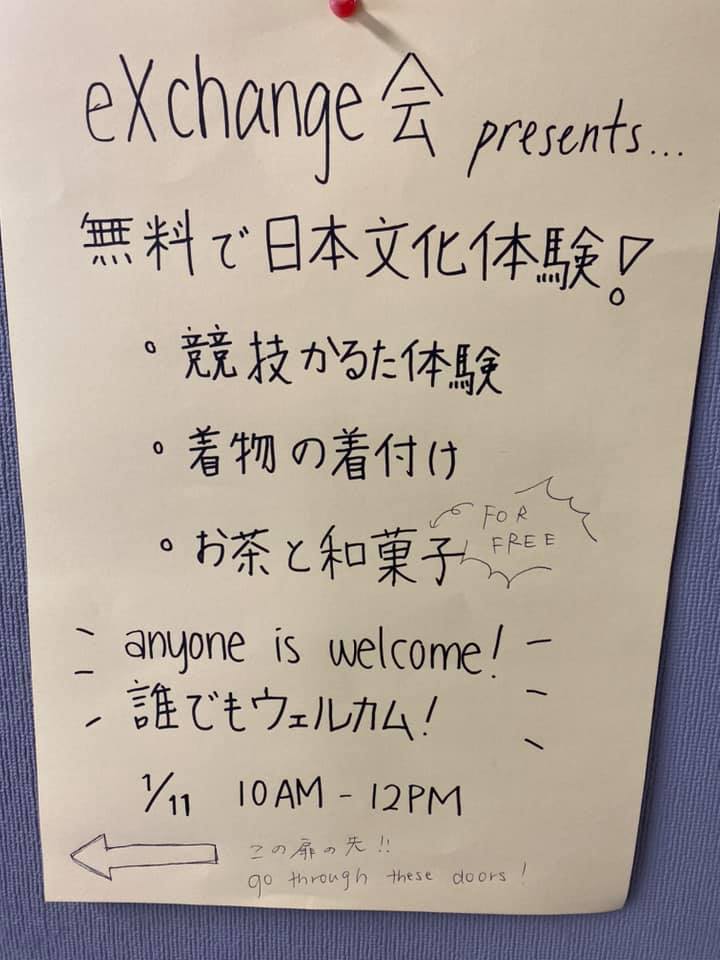 eXchange会 presents...
無料で日本文化体験!
• 競技かるた体験
• 着物の着付け
• お茶と和菓子
FOR
FREE
anyone is welcome!
誰でもウェルカム!
1/11 10AM - 12PM
この扉の先!!
go through these doors!